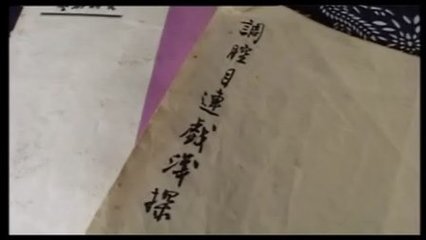 調腔目連戲淺探